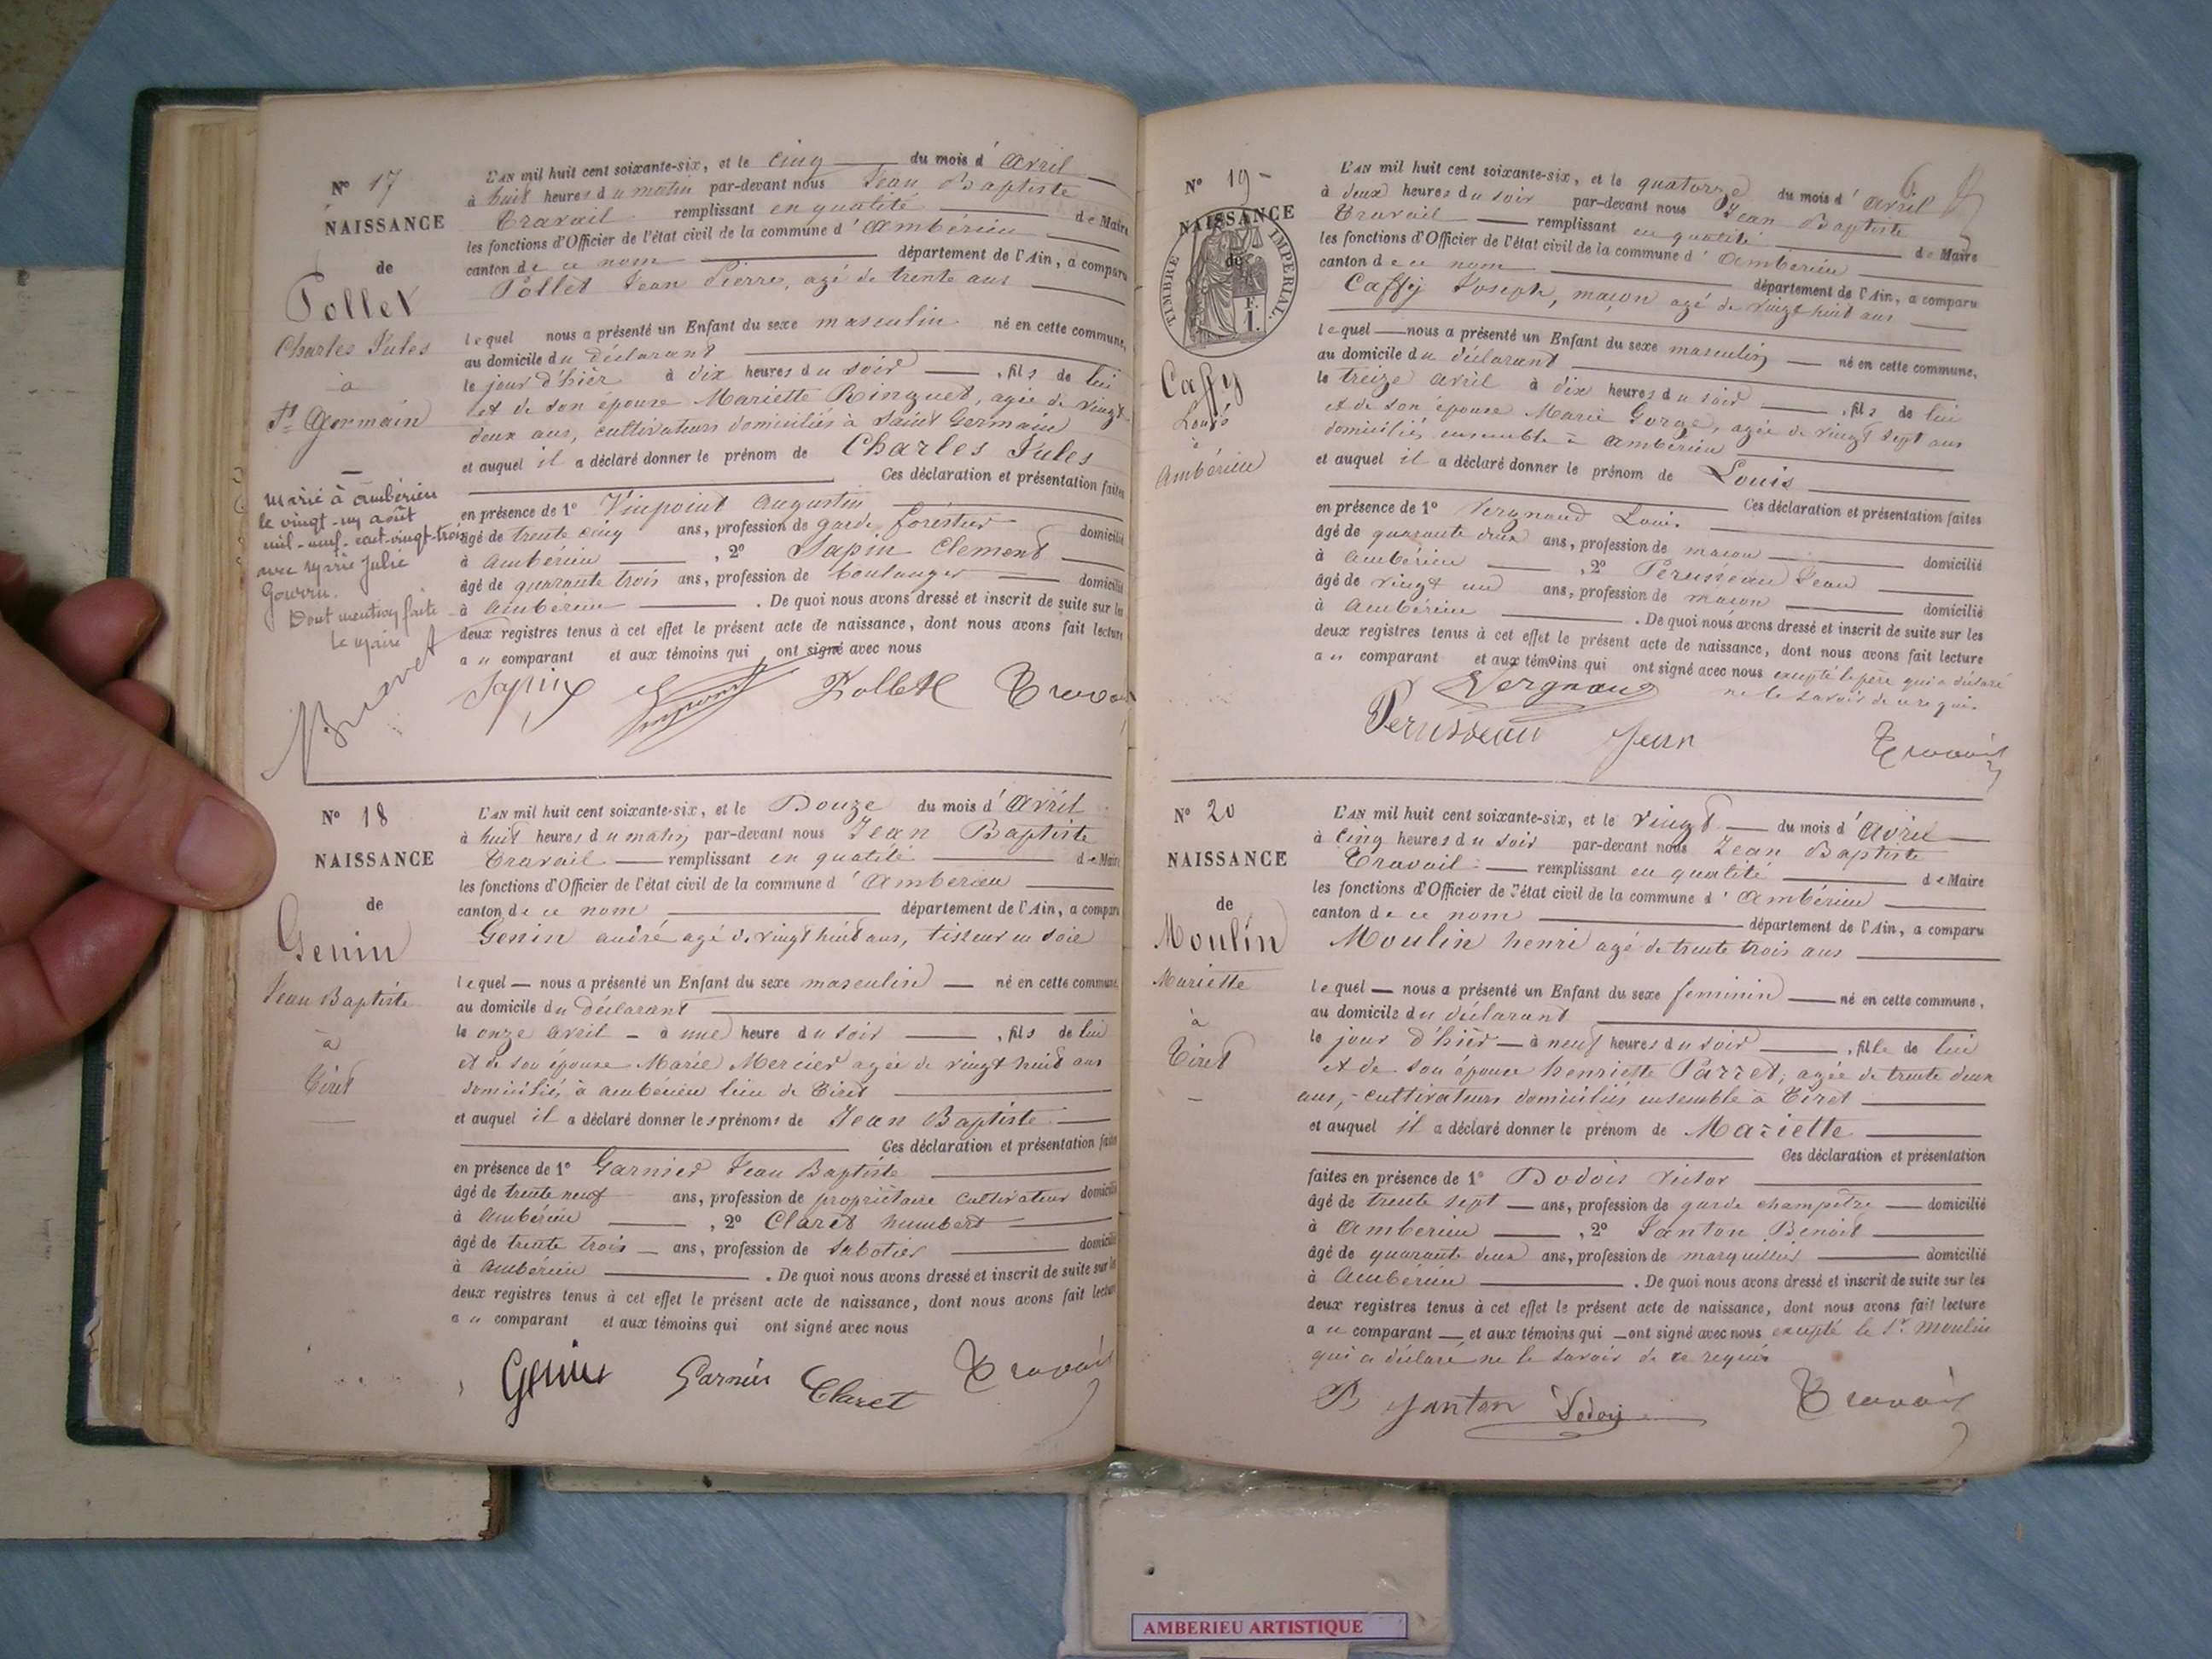 N° 17
NAISSANCE
de
Pollet
Charles Jules
à
St Germain
Marié à Ambérieu
le vingt-un août
mil-neuf-cent-vingt-trois
avec Marie Julie
Dont mention faite
Le Maire
Bravet
L'AN mil huit cent soixante-six, et le cinq du mois d'avril
à huit heures du matin par-devant nous Jean Baptiste
Travail remplissant en qualité de Maire
les fonctions d'Officier de l'état civil de la commune d'Ambérieu
canton de ce nom département de l'Ain, a comparu
Pollet Jean Pierre, agé de trente ans
lequel nous a présenté un Enfant du sexe masculin né en cette commune,
au domicile du déclarant
le jour d'hièr à dix heures du soir, fils de lui
et de son épouse Mariette Ringuet, agée de vingt
deux ans, cultivateurs domiciliés à Saint Germain
et auquel il a déclaré donner le prénom de Charles Jules
Ces déclaration et présentation faites
en présence de 1° Vinpoint Augustin
âgé de trente cinq ans, profession de garde forestier domicilié
à Ambérieu, 2° Sapin Clement
âgé de quarante trois ans, profession de boulanger domicilié
à Ambérieu. De quoi nous avons dressé et inscrit de suite sur les
deux registres tenus à cet effet le présent acte de naissance, dont nous avons fait lecture
au comparant et aux témoins qui ont signé avec nous
Sapin Pollet Travail
N° 18
NAISSANCE
de
Genin
Jean Baptiste
à
Tiret
L'AN mil huit cent soixante-six, et le Douze du mois d'avril
à huit heures du matin par-devant nous Jean Baptiste
Travail remplissant en qualité de Maire
les fonctions d'Officier de l'état civil de la commune d'Ambérieu
canton de ce nom département de l'Ain, a comparu
Genin andré agé de vingt huit ans, tisseur en soie
lequel nous a présenté un Enfant du sexe masculin né en cette commune
au domicile du déclarant
le onze avril à une heure du soir, fils de lui
et de son épouse Marie Mercier agée de vingt huit ans
domiciliés à ambérieu lieu de Tiret
et auquel il a déclaré donner les prénoms de Jean Baptiste
Ces déclaration et présentation faites
en présence de 1° Garnier Jean Baptiste
âgé de trente neuf ans, profession de propriétaire cultivateur domicilié
à Ambérieu, 2° Claret humbert
âgé de trente trois ans, profession de sabotier domicilié
à Ambérieu. De quoi nous avons dressé et inscrit de suite sur les
deux registres tenus à cet effet le présent acte de naissance, dont nous avons fait lecture
au comparant et aux témoins qui ont signé avec nous
Genin Garnier Claret Travail
N° 19
NAISSANCE
de
TIMBRE IMPERIAL.
Caffy
Louis
à
Ambérieu
L'AN mil huit cent soixante-six, et le quatorze du mois d'avril
à deux heures du soir par-devant nous Jean Baptiste
Travail remplissant en qualité de Maire
les fonctions d'Officier de l'état civil de la commune d'Ambérieu
canton de ce nom département de l'Ain, a comparu
Caffy Joseph, maçon agé de vingt huit ans
lequel nous a présenté un Enfant du sexe masculin né en cette commune,
au domicile du déclarant
le treize avril à dix heures du soir, fils de lui
et de son épouse Marie Gorge, agée de vingt sept ans
domiciliés ensemble à Ambérieu
et auquel il a déclaré donner le prénom de Louis
Ces déclaration et présentation faites
en présence de 1° Vergnaud Louis
âgé de quarante deux ans, profession de maçon domicilié
à Ambérieu, 2° Perusseau Jean
âgé de vingt un ans, profession de maçon domicilié
à Ambérieu. De quoi nous avons dressé et inscrit de suite sur les
deux registres tenus à cet effet le présent acte de naissance, dont nous avons fait lecture
au comparant et aux témoins qui ont signé avec nous excepté le père qui a déclaré
ne le savoir de ce requis
Vergnaud
Perusseau Jean Travail
N° 20
NAISSANCE
de
Moulin
Mariette
à
Tiret
L'AN mil huit cent soixante-six, et le vingt du mois d'avril
à cinq heures du soir par-devant nous Jean Baptiste
Travail remplissant en qualité de Maire
les fonctions d'Officier de l'état civil de la commune d'Ambérieu
canton de ce nom département de l'Ain, a comparu
Moulin henri agé de trente trois ans
lequel nous a présenté un Enfant du sexe feminin né en cette commune,
au domicile du déclarant
le jour d'hièr à neuf heures du soir, fille de lui
et de son épouse henriette Parret, agée de trente deux
ans, cultivateurs domiciliés ensemble à Tiret
et auquel il a déclaré donner le prénom de Mariette
Ces déclaration et présentation
faites en présence de 1° Dodois Victor
âgé de trente sept ans, profession de garde champêtre domicilié
à Ambérieu, 2° Janton Benoit
âgé de quarante deux ans, profession de marguillier domicilié
à Ambérieu. De quoi nous avons dressé et inscrit de suite sur les
deux registres tenus à cet effet le présent acte de naissance, dont nous avons fait lecture
au comparant et aux témoins qui ont signé avec nous excepté le Sr Moulin
qui a déclaré ne le savoir de ce requis
B Janton Dodois Travail
AMBERIEU ARTISTIQUE